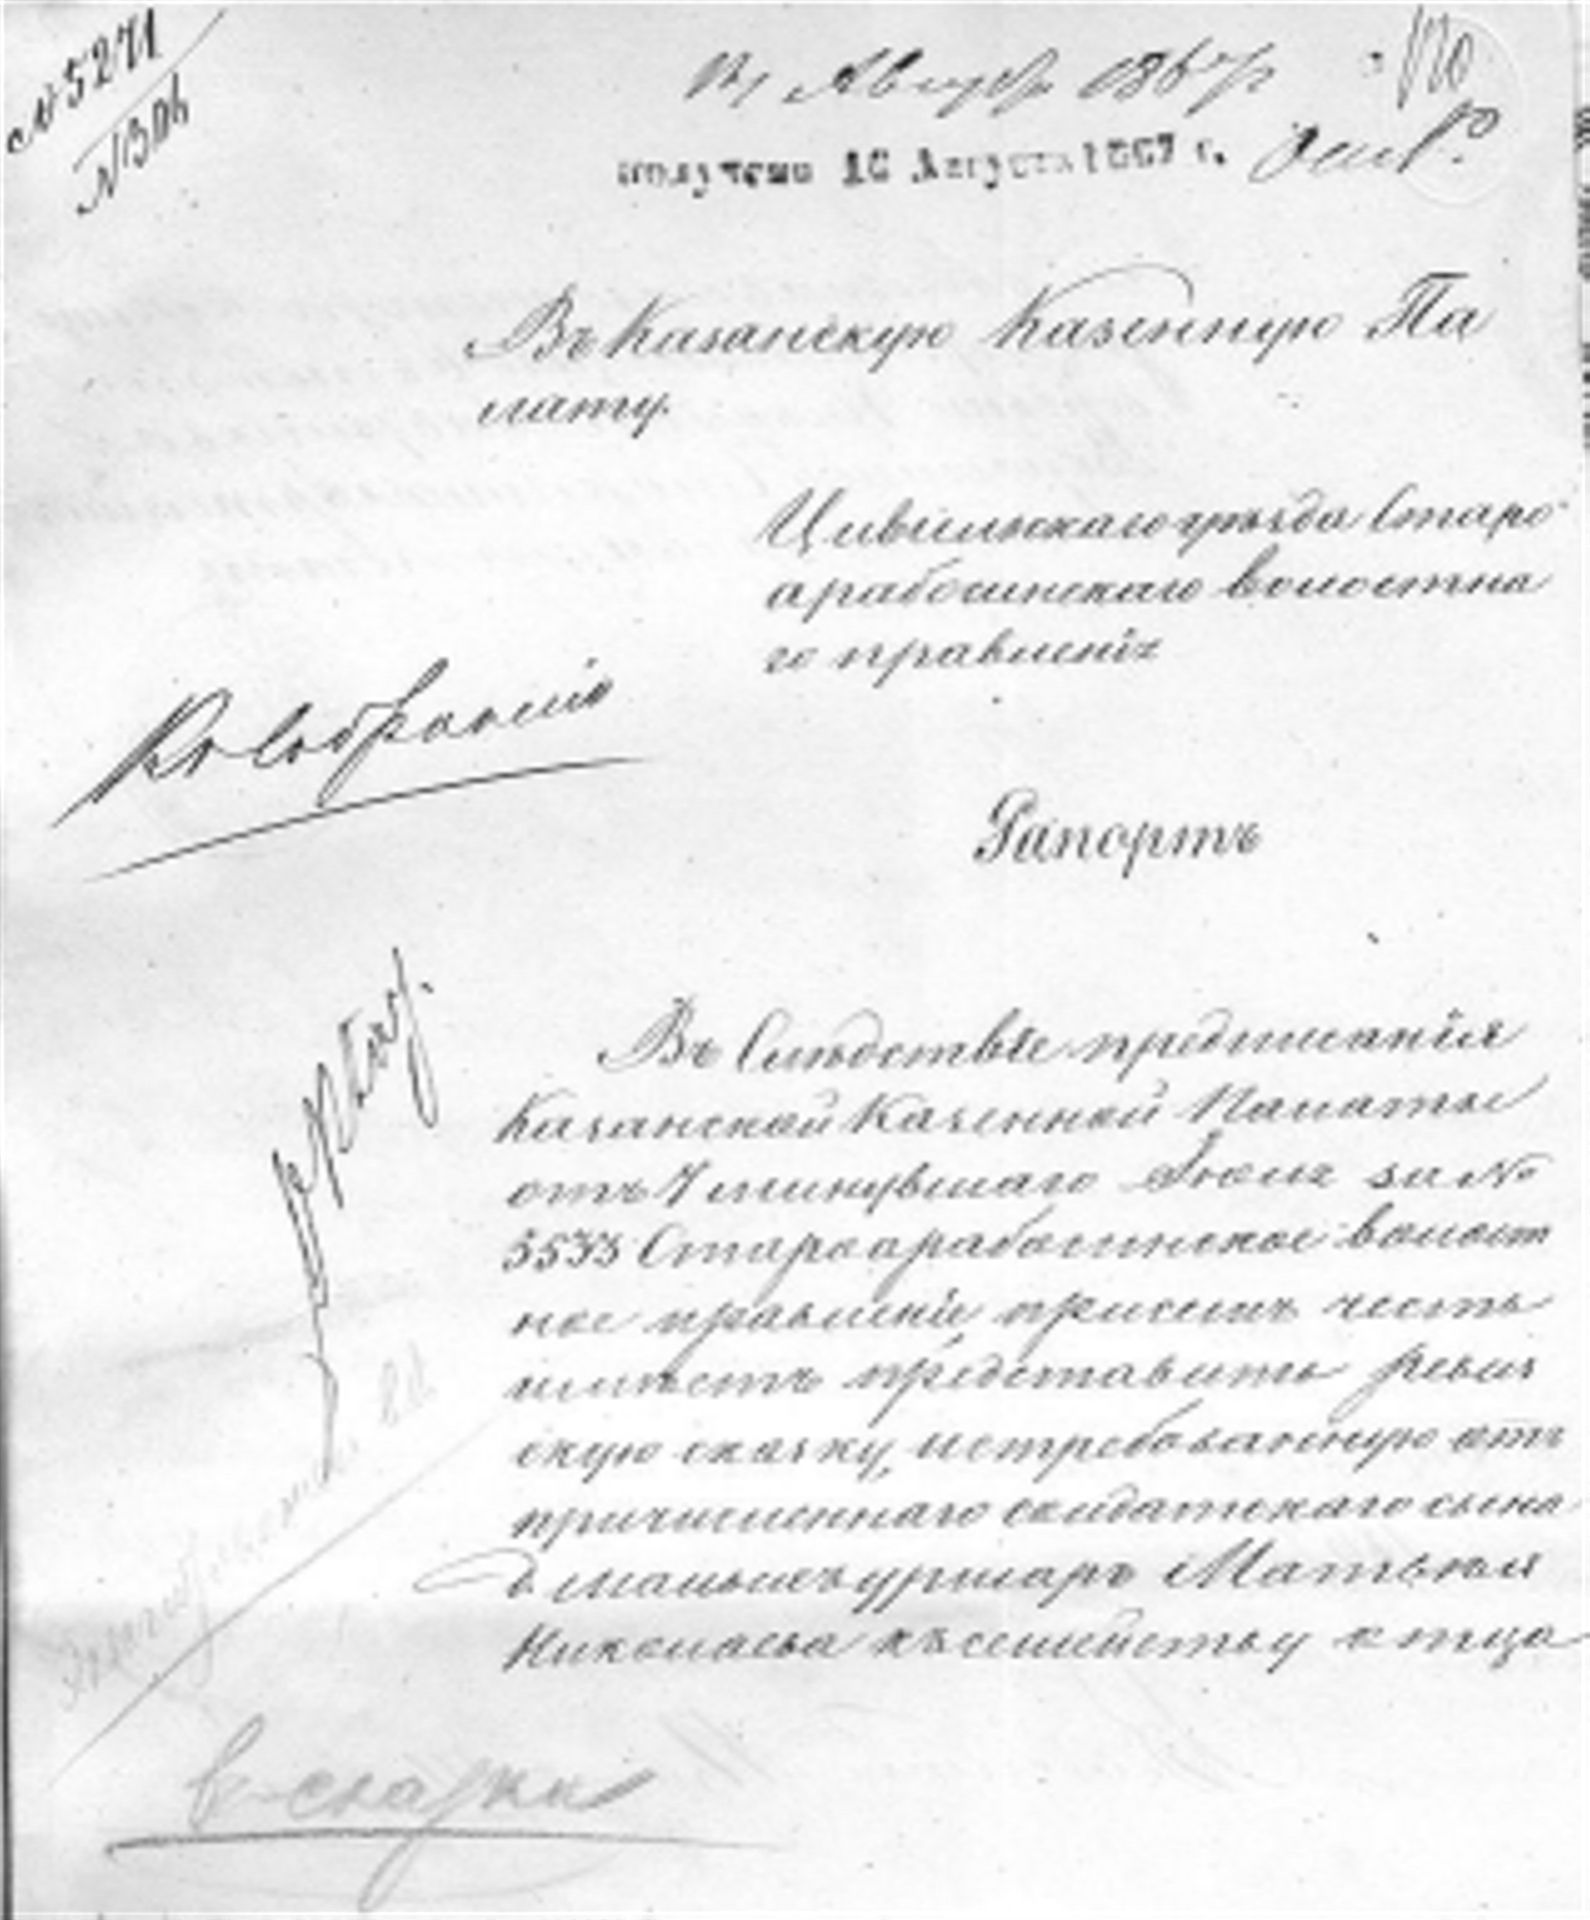 № 5271
№ 1306
получено 16 Августа 1867 г.
Въ Казанскую Казенную Па
лату.
Цивильскаго уѣзда Старо
арабосинскаго волостна
го правленія
Къ Собранію
Рапортъ
Въ Слѣдствіе предписанія
Казанской Казенной Палаты
отъ 7 минувшаго Іюля за №
5535 Староарабосинское волост
ное правленіе присемъ честь
имѣетъ представить ревиз
скую сказку, истребованную отъ
причисленнаго солдатскаго сына
д. Малыхъ урмаръ Матвѣя
Николаева къ семейству отца